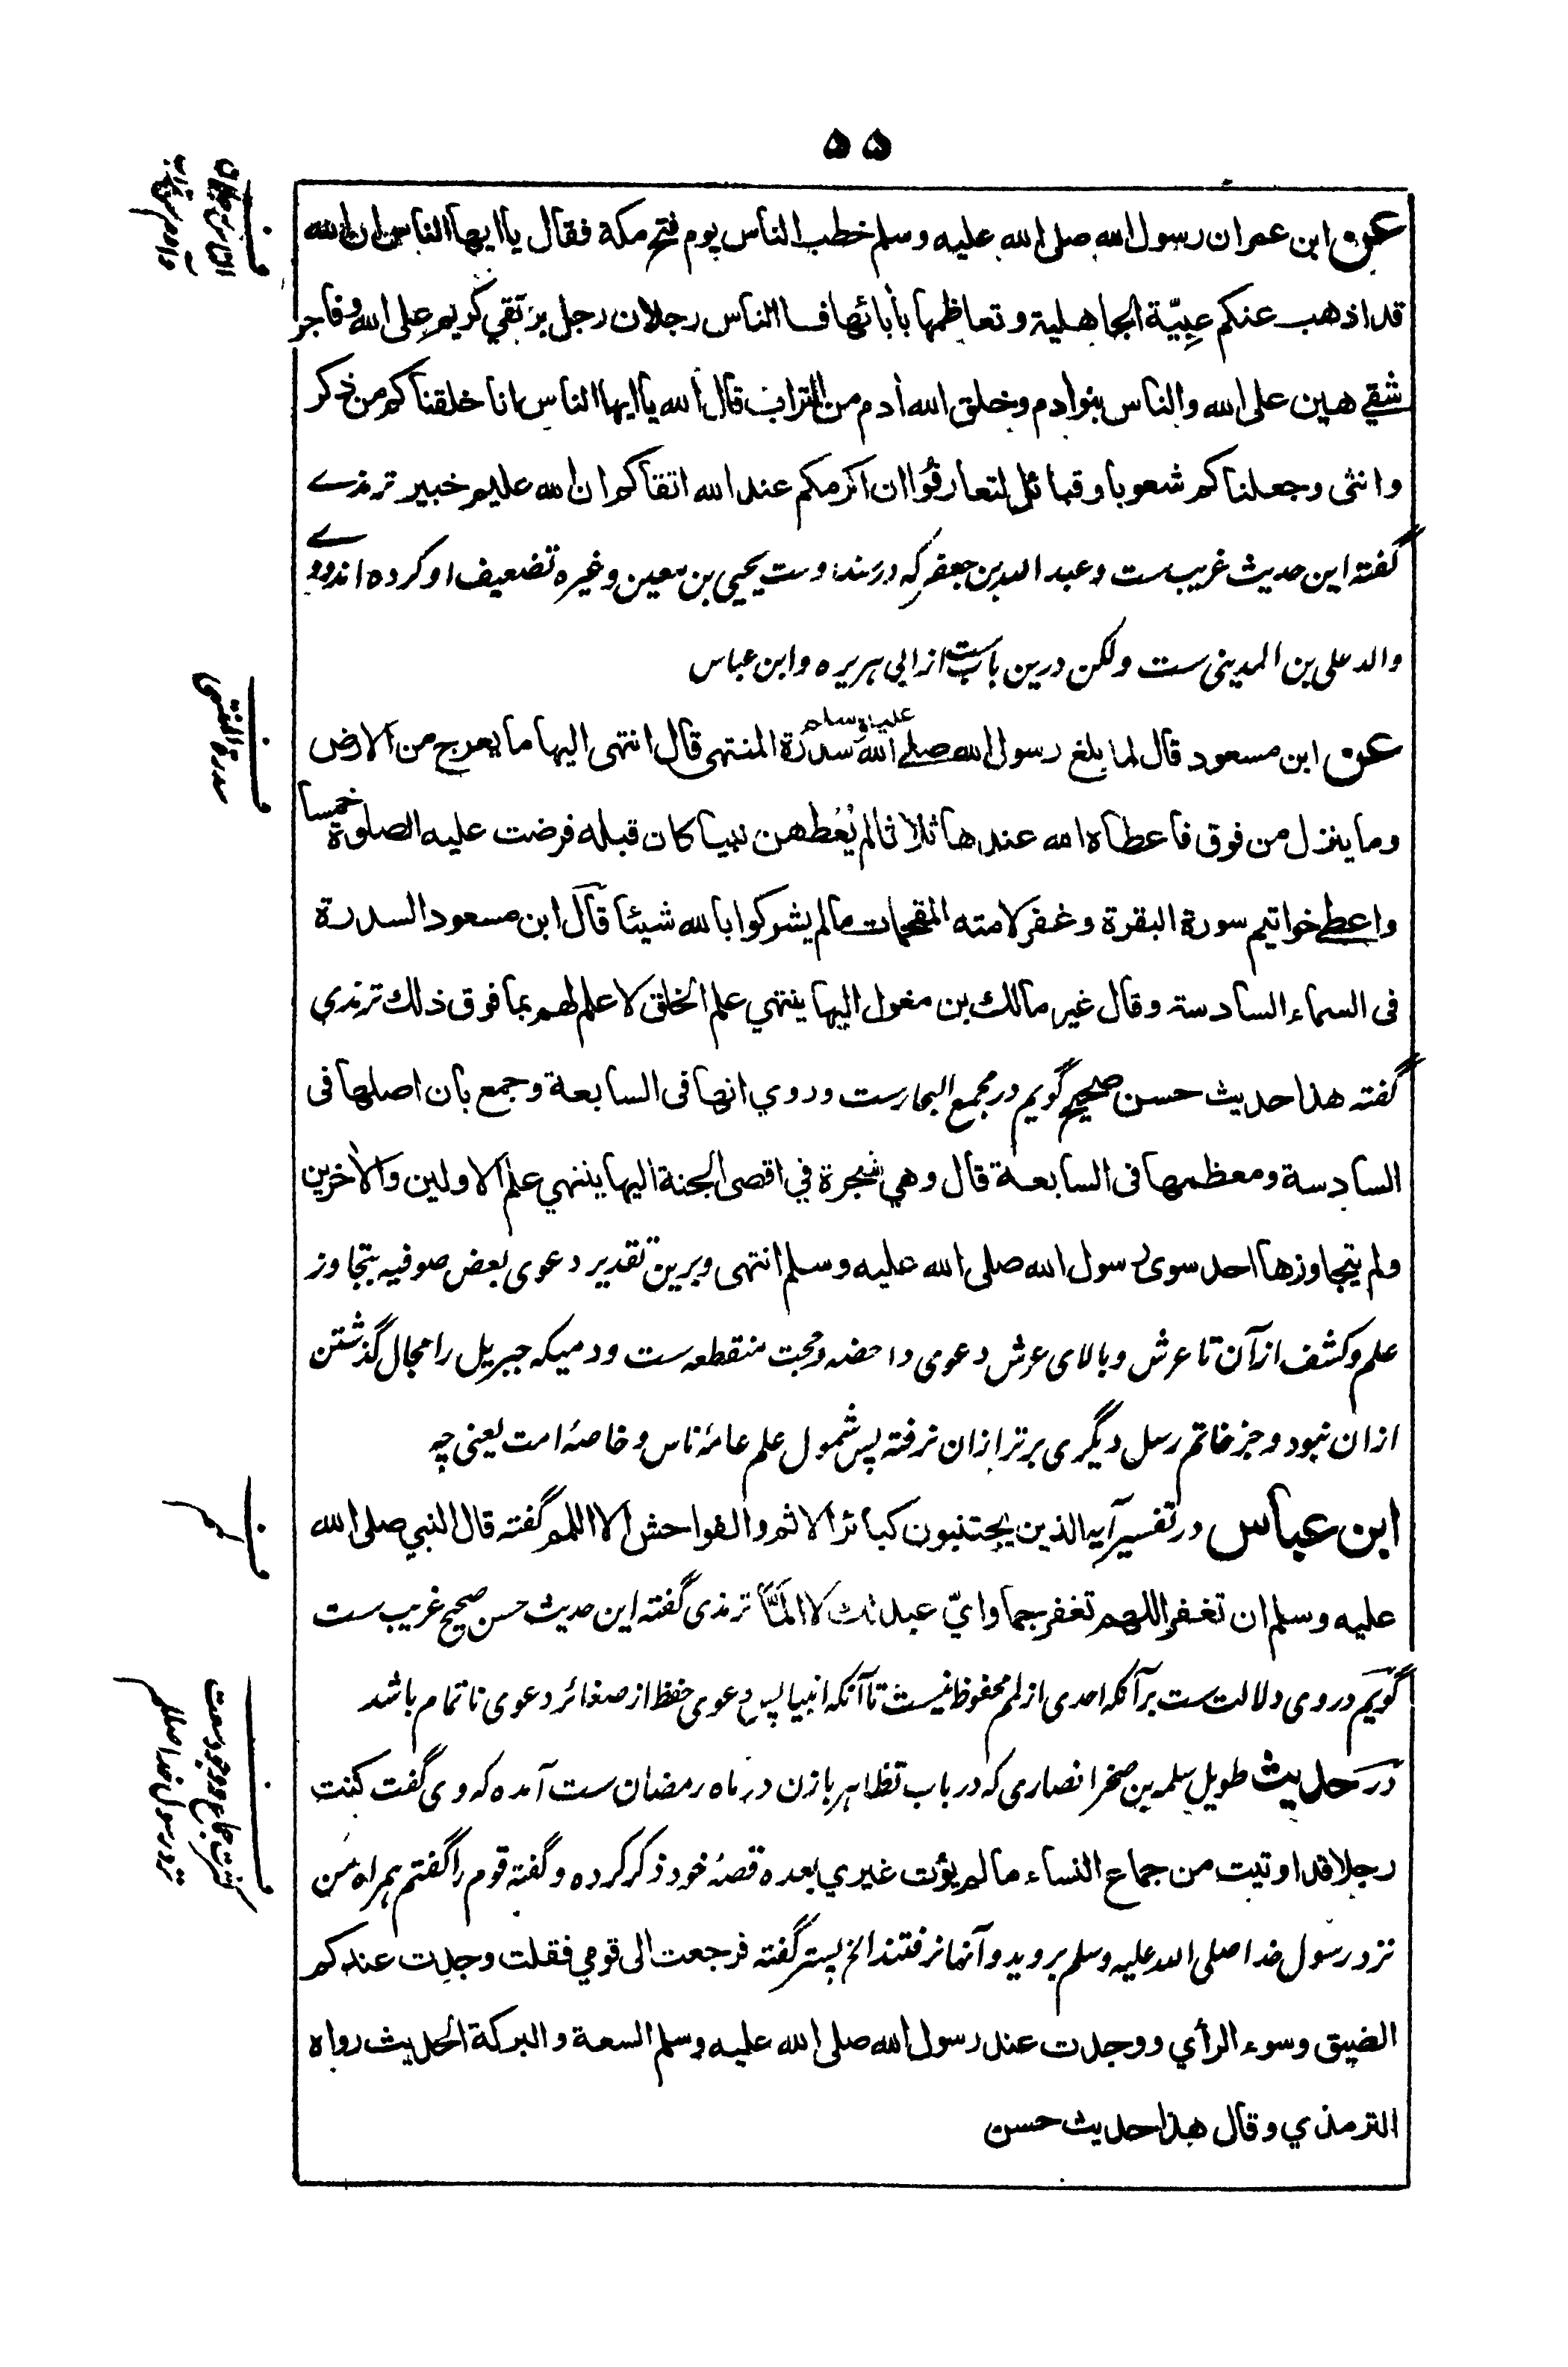 ۵۵
عن ابن عمر ان رسول الله صلى الله عليه وسلم خطب الناس يوم فتح مكة فقال يا ايها الناس ان الله
قد اذهب عنكم عبيّة الجاهلية و تعاظمها بأبائها فالناس رجلان رجل بر تقي كريم على الله و فاجر
شقي هين على الله والناس بنو ادم وخلق الله أدم من التراب قال الله يا ايها الناس انا خلقناكم من ذكر
وانثى وجعلناكم شعوبا وقبائل لتعارفوا ان اكرمكم عند الله اتقاكم ان الله عليم خبير ترمذے
گفته این حدیث غریب ست و عبد الله بن جعفر که در سند اوست یحیی بن معین و غیره تضعیف او کرده اند و وے
والد علی بن المدینی ست ولکن درین باب ست از ابی هریره و ابن عباس
عن ابن مسعود قال لما بلغ رسول الله صلے الله عليه وسلم سدرة المنتهى قال انتهى اليها ما يعرج من الارض
وما ينزل من فوق فاعطاه الله عندها ثلاثا لم يُعطهن نبيا كان قبله فرضت عليه الصلوة خمسا
واعطے خواتيم سورة البقرة وغفر لامته المقحمات مالم يشركوا بالله شيئا قال ابن مسعود السدرة
فى السماء السادسة وقال غير مالك بن مغول اليها ينتهي علم الخلق لا علم لهم بما فوق ذلك ترمذي
گفته هذا حديث حسن صحيح گویم در مجمع البحار ست وروي انها فى السابعة وجمع بان اصلها فى
السادسة ومعظمها فى السابعة قال وهي شجرة في اقصى الجنة اليها ينتهي علم الاولين والأخرين
ولم يتجاوزها احد سوى رسول الله صلى الله عليه وسلم انتهى و برین تقدیر دعوی بعض صوفیه بتجاوز
علم و کشف از آن تا عرش و بالای عرش دعوی داحضه و حجت منقطعه ست و دمیکه جبریل را مجال گذشتن
ازان نبود و جز خاتم رسل دیگری برتر ازان نرفته پس شمول علم عامهٔ ناس و خاصهٔ امت یعنی چه
ابن عباس در تفسیر آیه الذين يجتنبون كبائر الاثم والفواحش الا اللمم گفته قال النبي صلى الله
عليه وسلم ان تغفر اللهم تغفر جما وايّ عبد لك لا المّا ترمذی گفته این حدیث حسن صحیح غریب ست
گویم در وی دلالت ست بر آنکه احدی از لمم محفوظ نیست تا آنکه انبیا پس دعوی حفظ از صغائر دعوی ناتمام باشد
در حدیث طویل سلمه بن صخر انصاری که در باب تظاهر بازن در ماه رمضان ست آمده که وی گفت كنت
رجلا قد اوتيت من جماع النساء ما لم يؤت غيري بعده قصهٔ خود ذکر کرده و گفته قوم را گفتم همراه من
نزد رسول خدا صلی الله علیه وسلم بروید و آنها نرفتند الخ پستر گفته فرجعت الى قومي فقلت وجدت عندكم
الضيق وسوء الرأي ووجدت عند رسول الله صلى الله عليه وسلم السعة والبركة الحديث رواه
الترمذي وقال هذا حديث حسن
ف
سدرة المنتهى
ف
ف
نزد رسول خدا صلعم